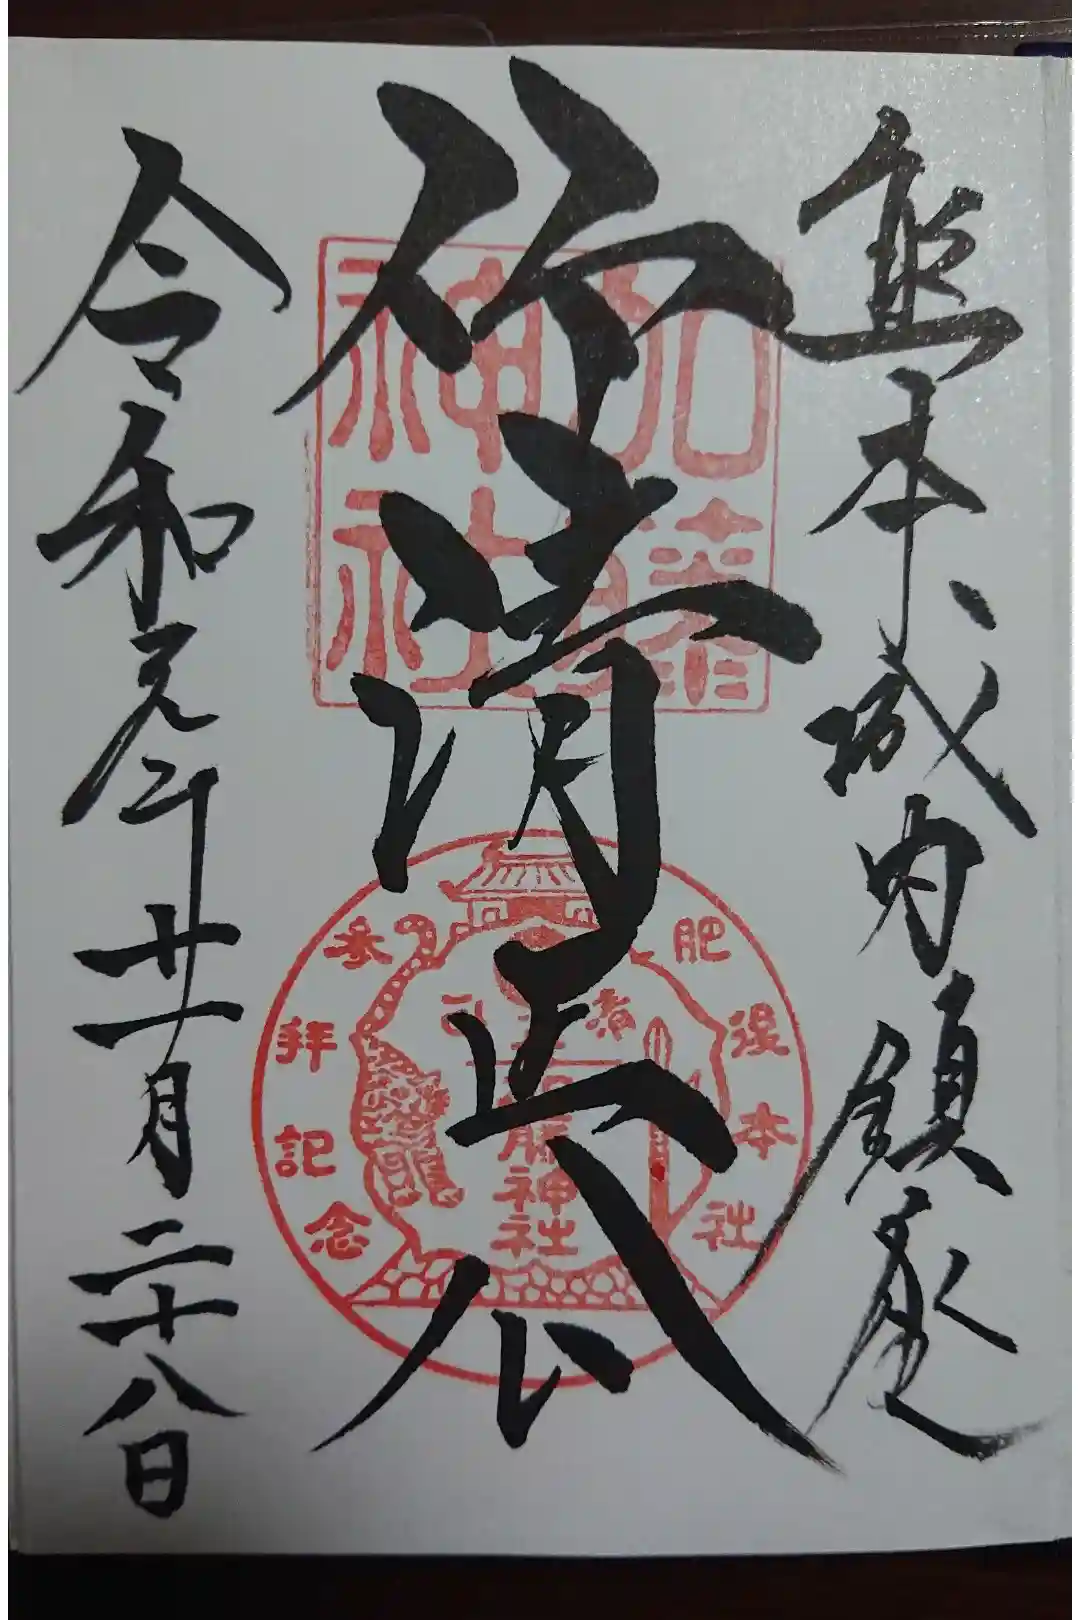 熊本城内鎮座
仰清正公
令和元年十一月二十八日
加藤
神社
肥後本社
参拝記念
清正公
加藤神社